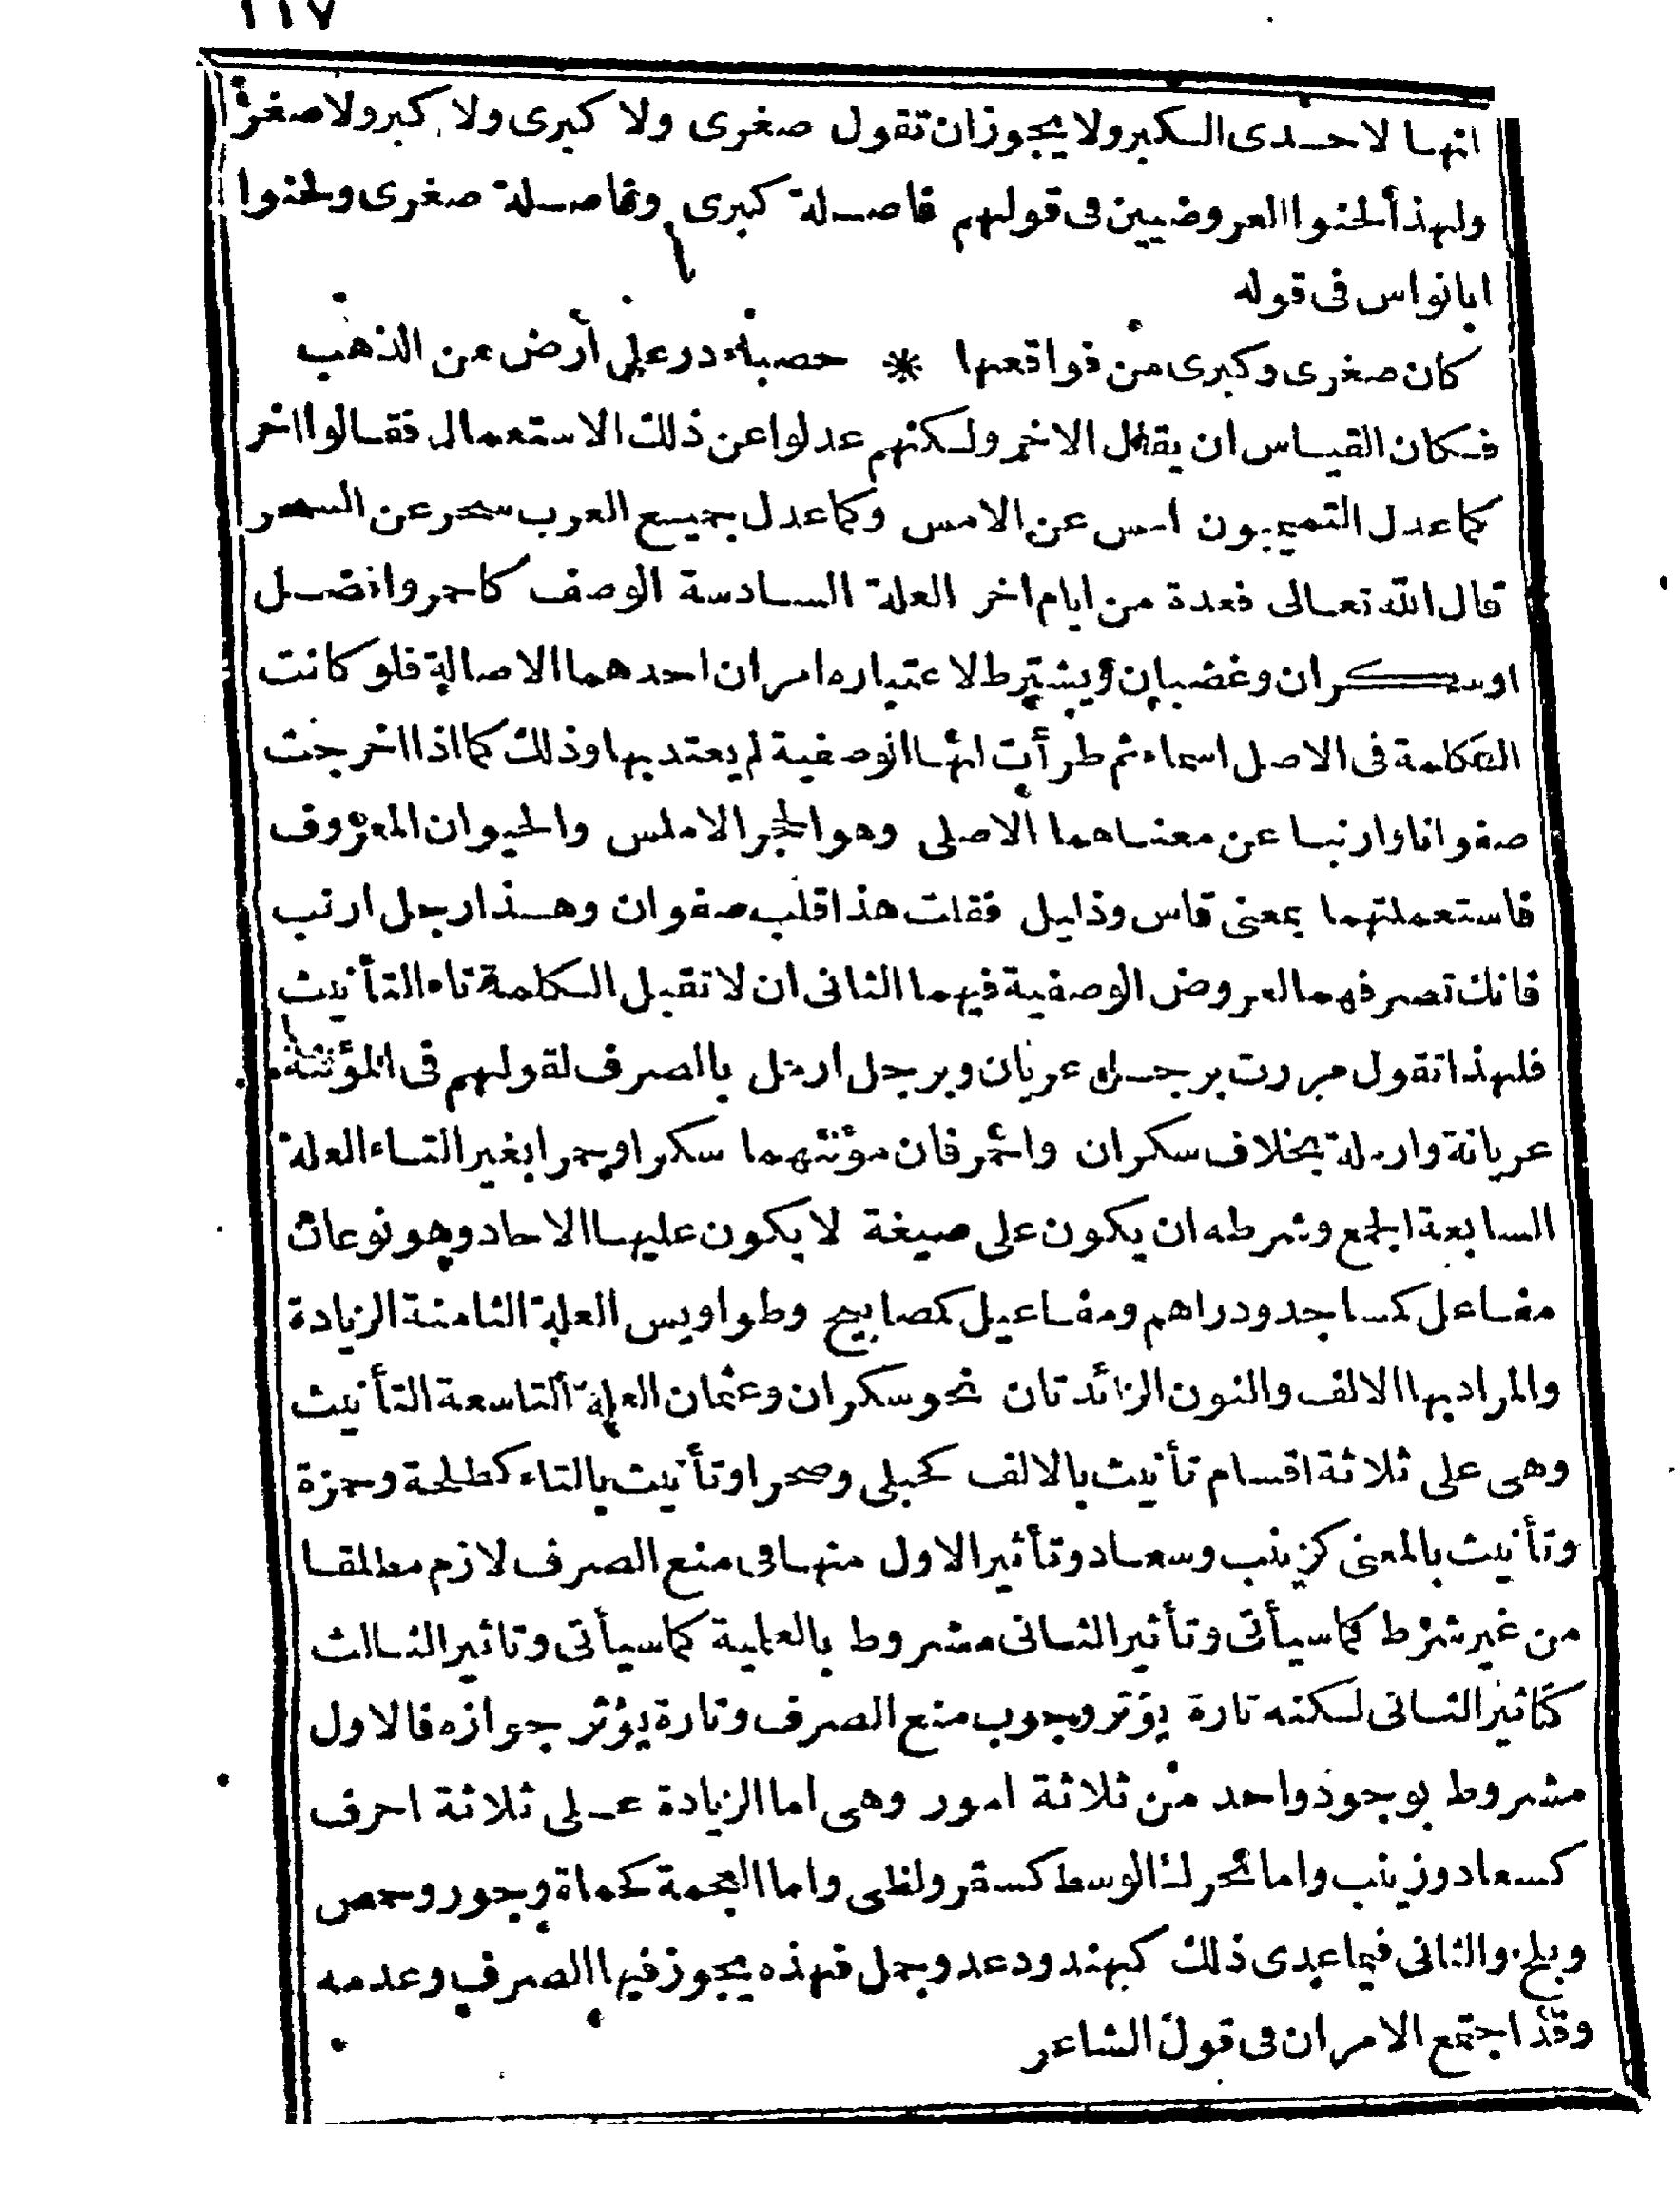 ١١٧
انها لاحدى الكبر ولا يجوز ان تقول صغرى ولا كبرى ولا كبر ولا صغر
ولهذا لحنوا العروضيين فى قولهم فاصلة كبرى وفاصلة صغرى ولحنوا
ابا نواس فى قوله
كان صغرى وكبرى من فواقعها * حصباء در على أرض من الذهب
فكان القياس ان يقال الاخر ولكنهم عدلوا عن ذلك الاستعمال فقالوا اخر
كما عدل التميميون امس عن الامس وكما عدل جميع العرب سحر عن السحر
قال الله تعالى فعدة من ايام اخر العلة السادسة الوصف كاحمر وافضل
اوسكران وغضبان ويشترط لاعتباره امران احدهما الاصالة فلو كانت
الكلمة فى الاصل اسماء ثم طرأت لها الوصفية لم يعتد بها وذلك كما اذا اخرجت
صفوانا وارنبا عن معناهما الاصلى وهو الحجر الاملس والحيوان المعروف
فاستعملتهما بمعنى قاس وذليل فقلت هذا قلب صفوان وهذا رجل ارنب
فانك تصرفهما لعروض الوصفية فيهما الثانى ان لا تقبل الكلمة تاء التأنيث
فلهذا تقول مررت برجل عريان وبرجل ارمل بالصرف لقولهم فى المؤنثة
عريانة وارملة بخلاف سكران واحمر فان مؤنثهما سكرا وحمرا بغير التاء العلة
السابعة الجمع وشرطه ان يكون على صيغة لا يكون عليها الاحاد وهو نوعان
مفاعل كمساجد ودراهم ومفاعيل كمصابيح وطواويس العلة الثامنة الزيادة
والمراد بها الالف والنون الزائدتان نحو سكران وعثمان العلة التاسعة التأنيث
وهى على ثلاثة اقسام تأنيث بالالف كحبلى وصحرا وتأنيث بالتاء كطلحة وحمزة
وتأنيث بالمعنى كزينب وسعاد وتأثير الاول منها فى منع الصرف لازم مطلقا
من غير شرط كما سيأتى وتأثير الثانى مشروط بالعلمية كما سيأتى وتاثير الثالث
كتاثير الثانى لكنه تارة يؤثر وجوب منع الصرف وتارة يؤثر جوازه فالاول
مشروط بوجود واحد من ثلاثة امور وهى اما الزيادة على ثلاثة احرف
كسعاد وزينب واما تحرك الوسط كسقر ولظى واما العجمة كحماة وجور وحمص
وبلخ والثانى فيما عدى ذلك كهند ودعد وجمل فهذه يجوز فيها الصرف وعدمه
وقد اجتمع الامران فى قول الشاعر